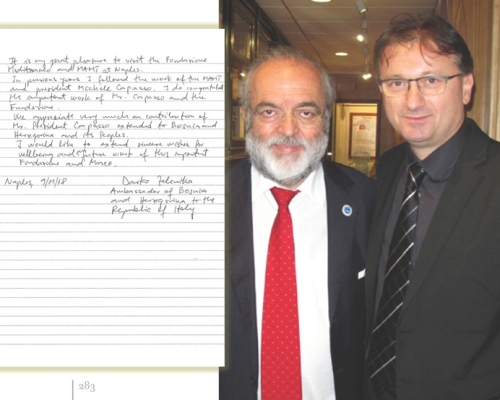 It is my great pleasure to visit the Fondazione
Mediterraneo and MAMT at Naples.
In previous years I followed the work of the MAMT
and president Michele Capasso. I do congratulate
the important work of Mr. Capasso and the
Fondazione.
We appreciate very much on contribution of
Mr. President Capasso extended to Bosnia and
Herzegovina and its Peoples.
I would like to extend sincere wishes for
wellbeing and future work of this important
Fondazione and Museo.
Naples, 9/11/18
Darko Zelenika
Ambassador of Bosnia
and Herzegovina to the
Republic of Italy
283